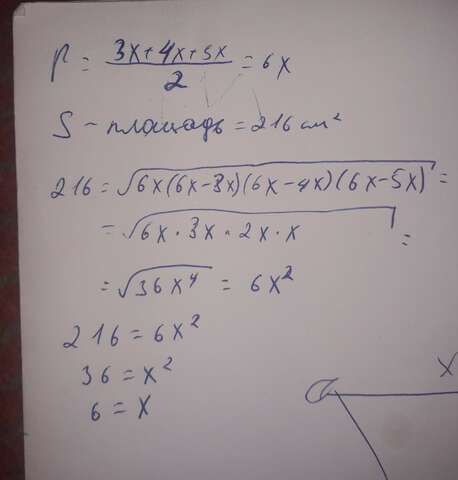 p = (3x+4x+5x)/2 = 6x
S - площадь = 216 см²
216 = √(6x(6x-3x)(6x-4x)(6x-5x)) =
= √(6x·3x·2x·x) =
= √(36x⁴) = 6x²
216 = 6x²
36 = x²
6 = x
x